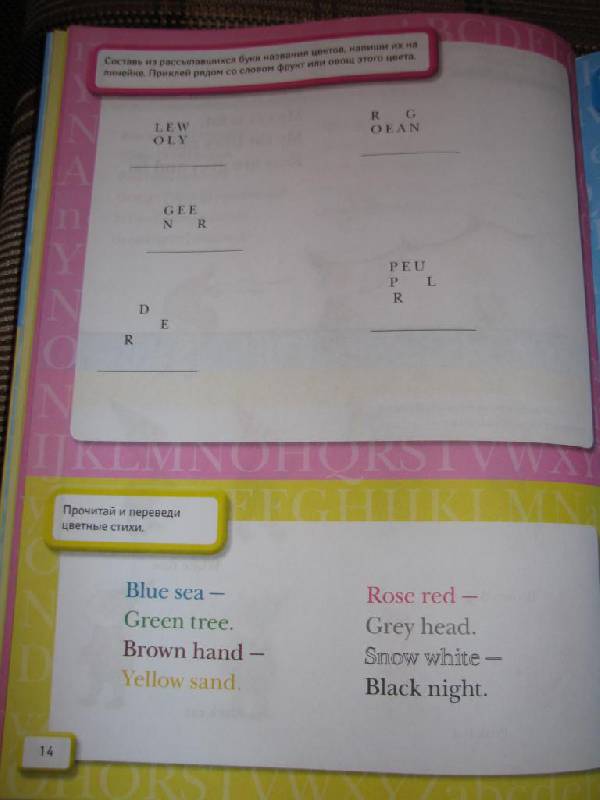 Составь из рассыпавшихся букв названия цветов, напиши их на
линейке. Приклей рядом со словом фрукт или овощ этого цвета.
LEW
OLY
R G
OEAN
GEE
N R
PEU
P L
R
D
E
R
IJKLMNOHQRSTVWXY
Прочитай и переведи
цветные стихи.
Blue sea –
Green tree.
Brown hand –
Yellow sand.
Rose red –
Grey head.
Snow white –
Black night.
14